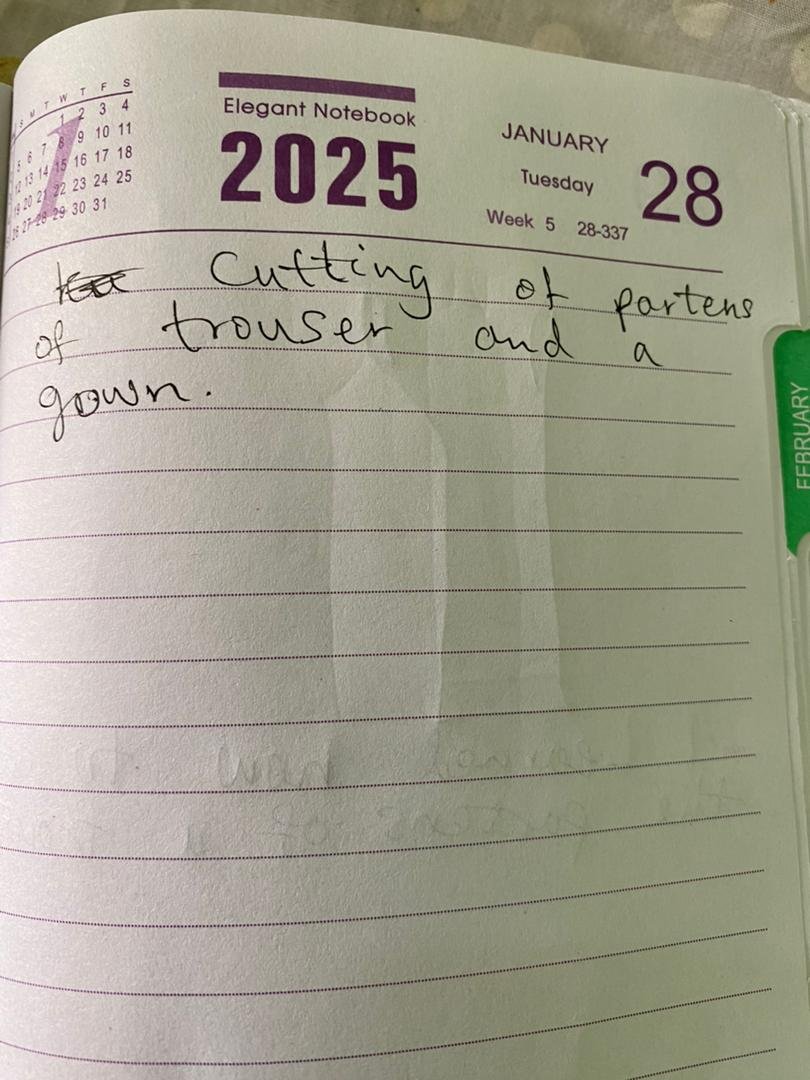 S M T W T F S
1 2 3 4
5 6 7 8 9 10 11
12 13 14 15 16 17 18
19 20 21 22 23 24 25
26 27 28 29 30 31
Elegant Notebook
2025
JANUARY
Tuesday
28
Week 5 28-337
Cutting of partens
of trouser and a
gown.
FEBRUARY